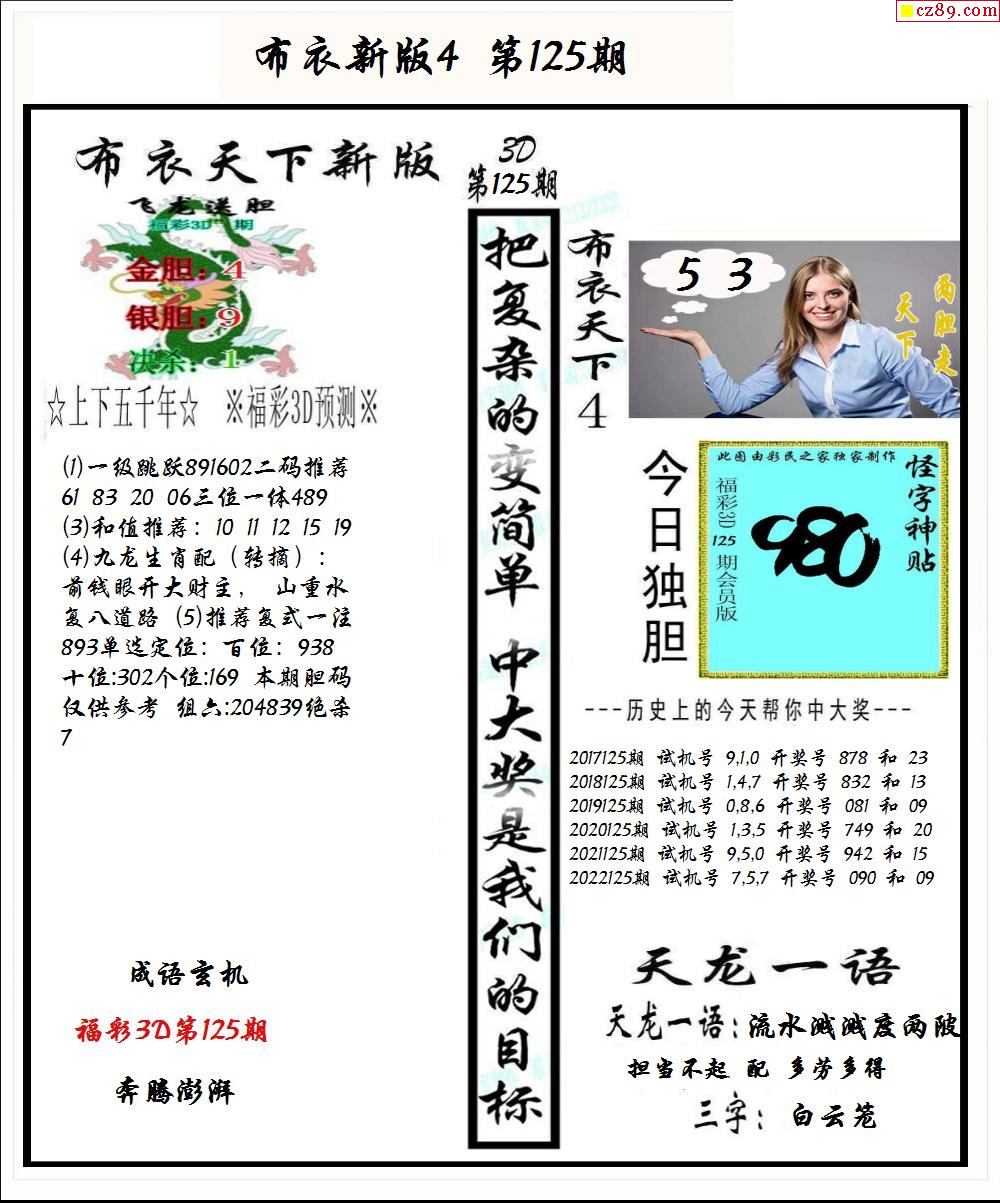 cz89.com
布衣新版4 第125期
布衣天下新版
飞龙送胆
福彩3D 期
金胆：4
银胆：9
决杀：1
☆上下五千年☆ ※福彩3D预测※
(1)一级跳跃891602二码推荐
61 83 20 06三位一体489
(3)和值推荐：10 11 12 15 19
(4)九龙生肖配（转摘）：
前钱眼开大财主， 山重水
复八道路 (5)推荐复式一注
893单选定位：百位：938
十位:302个位:169 本期胆码
仅供参考 组六:204839绝杀
7
成语玄机
福彩3D第125期
奔腾澎湃
3D
第125期
把复杂的变简单 中大奖是我们的目标
布衣天下4
5 3
两胆走
天下
今日独胆
此图由彩民之家独家制作
怪字神贴
福彩3D 125 期会员版
980
---历史上的今天帮你中大奖---
2017125期 试机号 9,1,0 开奖号 878 和 23
2018125期 试机号 1,4,7 开奖号 832 和 13
2019125期 试机号 0,8,6 开奖号 081 和 09
2020125期 试机号 1,3,5 开奖号 749 和 20
2021125期 试机号 9,5,0 开奖号 942 和 15
2022125期 试机号 7,5,7 开奖号 090 和 09
天龙一语
天龙一语：流水溅溅度两陂
担当不起 配 多劳多得
三字： 白云笼